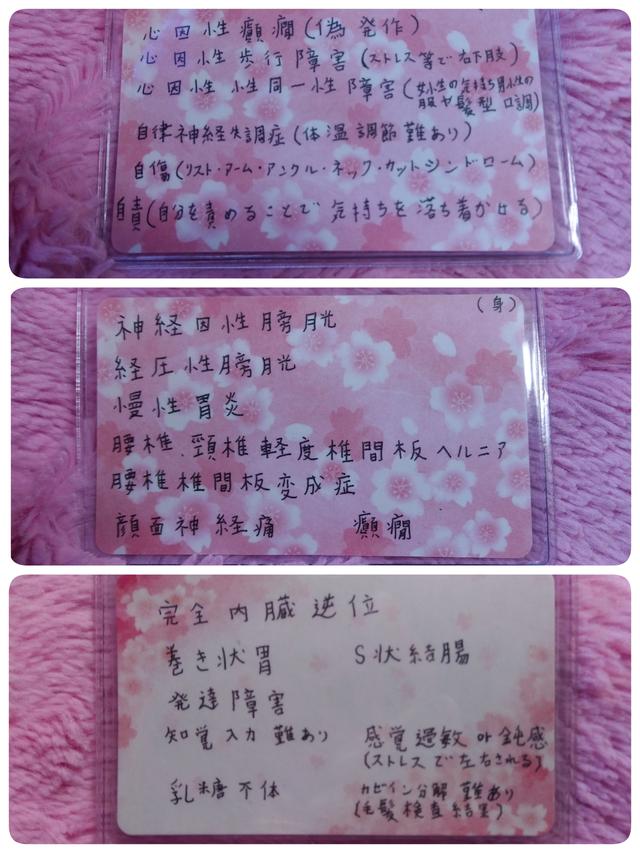 心因性癲癇(偽発作)
心因性歩行障害(ストレス等で右下肢)
心因性 性同一性障害(女性の気持ち男性の
服や髪型 口調)
自律神経失調症(体温調節難あり)
自傷(リスト・アーム・アンクル・ネック・カットシンドローム)
自責(自分を責めることで気持ちを落ち着かせる)
(身)
神経因性膀胱
経圧性膀胱
慢性胃炎
腰椎、頸椎軽度椎間板ヘルニア
腰椎椎間板変成症
顔面神経痛 癲癇
完全内臓逆位
巻き状胃 S状結腸
発達障害
知覚入力難あり 感覚過敏or鈍感
(ストレスで左右される)
乳糖不体 カゼイン分解難あり
(毛髪検査結果)